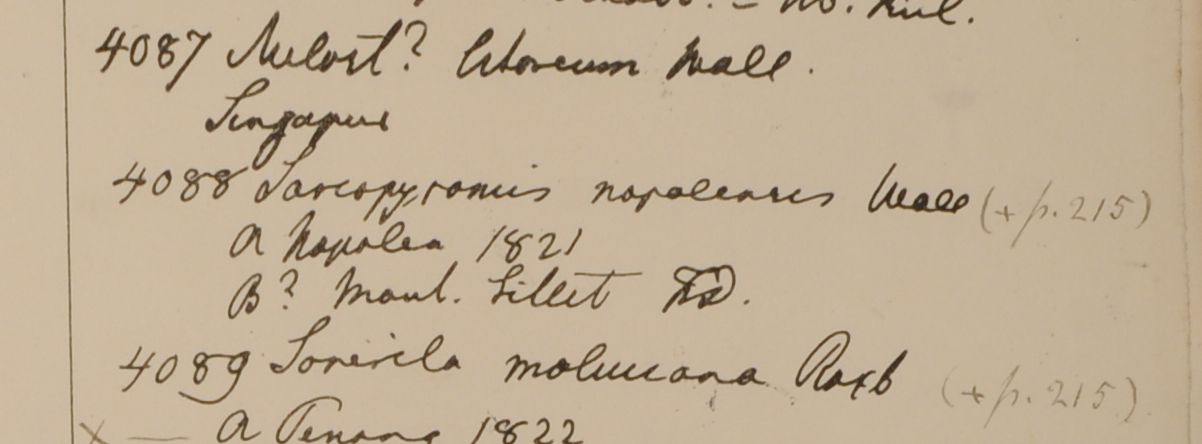 4087 Melast? litoreum Wall.
Singapur
4088 Sarcopyramis napalensis Wall (+ p. 215)
A Napalia 1821
B? Mont. Sillet FD.
4089 Sonerila moluccana Roxb (+ p. 215)
x — A Penang 1822